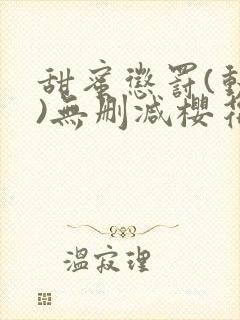 甜蜜懲罰(動
)無刪減櫻花
溫寂理